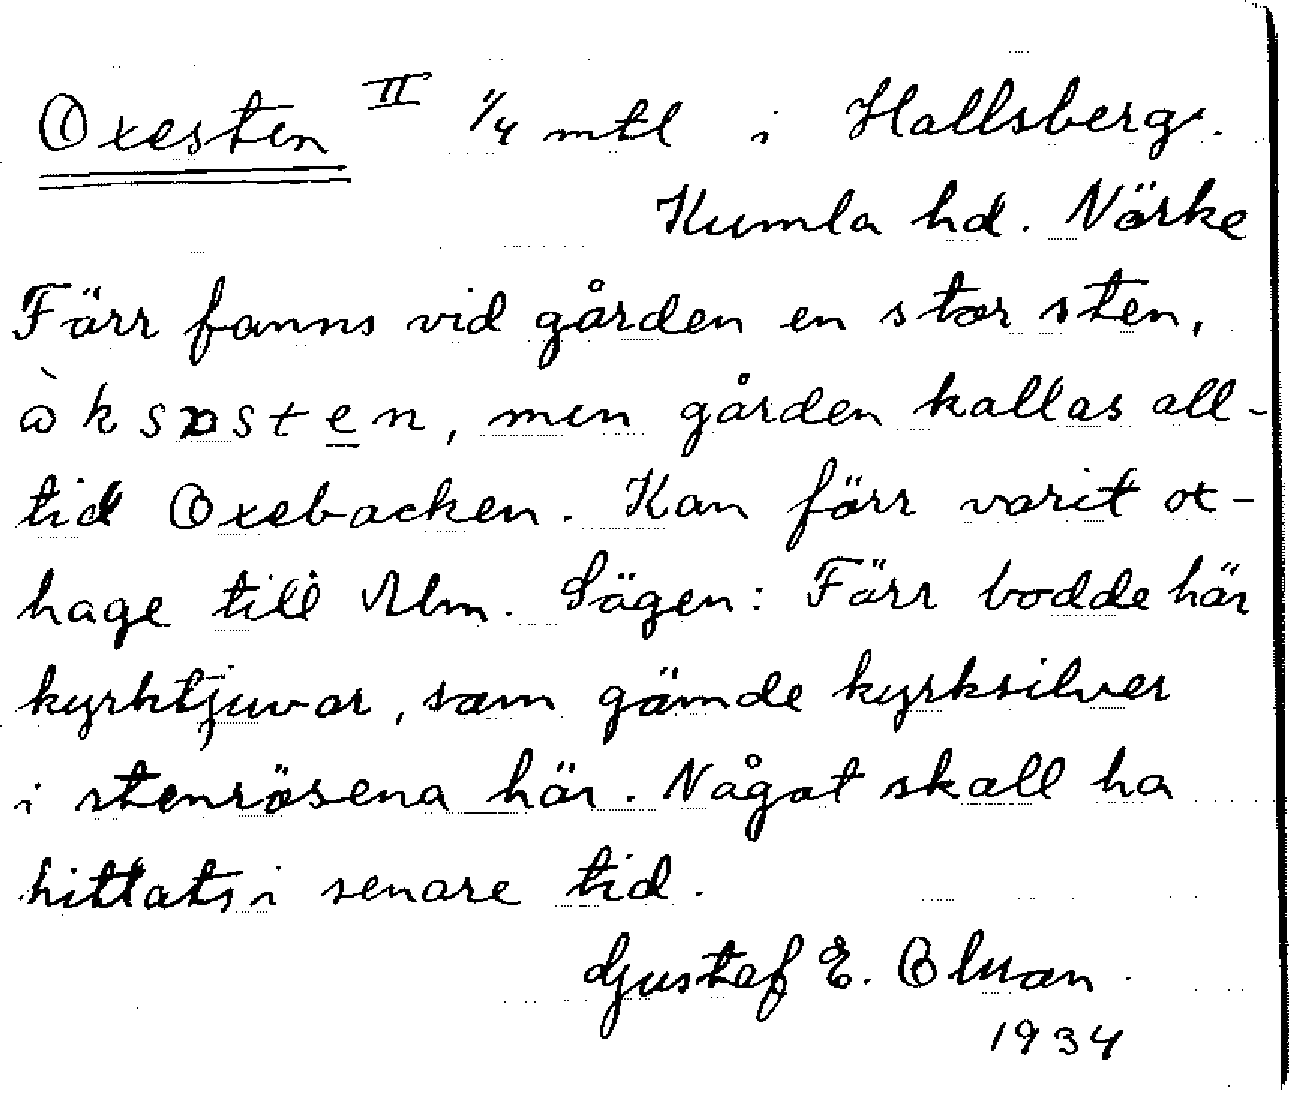 Oxesten II 1/4 mtl i Hallsberg.
Kumla hd. Närke
Förr fanns vid gården en stor sten,
men gården kallas all-
tid Oxebacken. Kan förr varit ox-
hage till Alm. Sägen: Förr bodde här
kyrktjuvar, som gömde kyrksilver
i stenrösena här. Något skall ha
hittats i senare tid.
Gustaf E.
1934